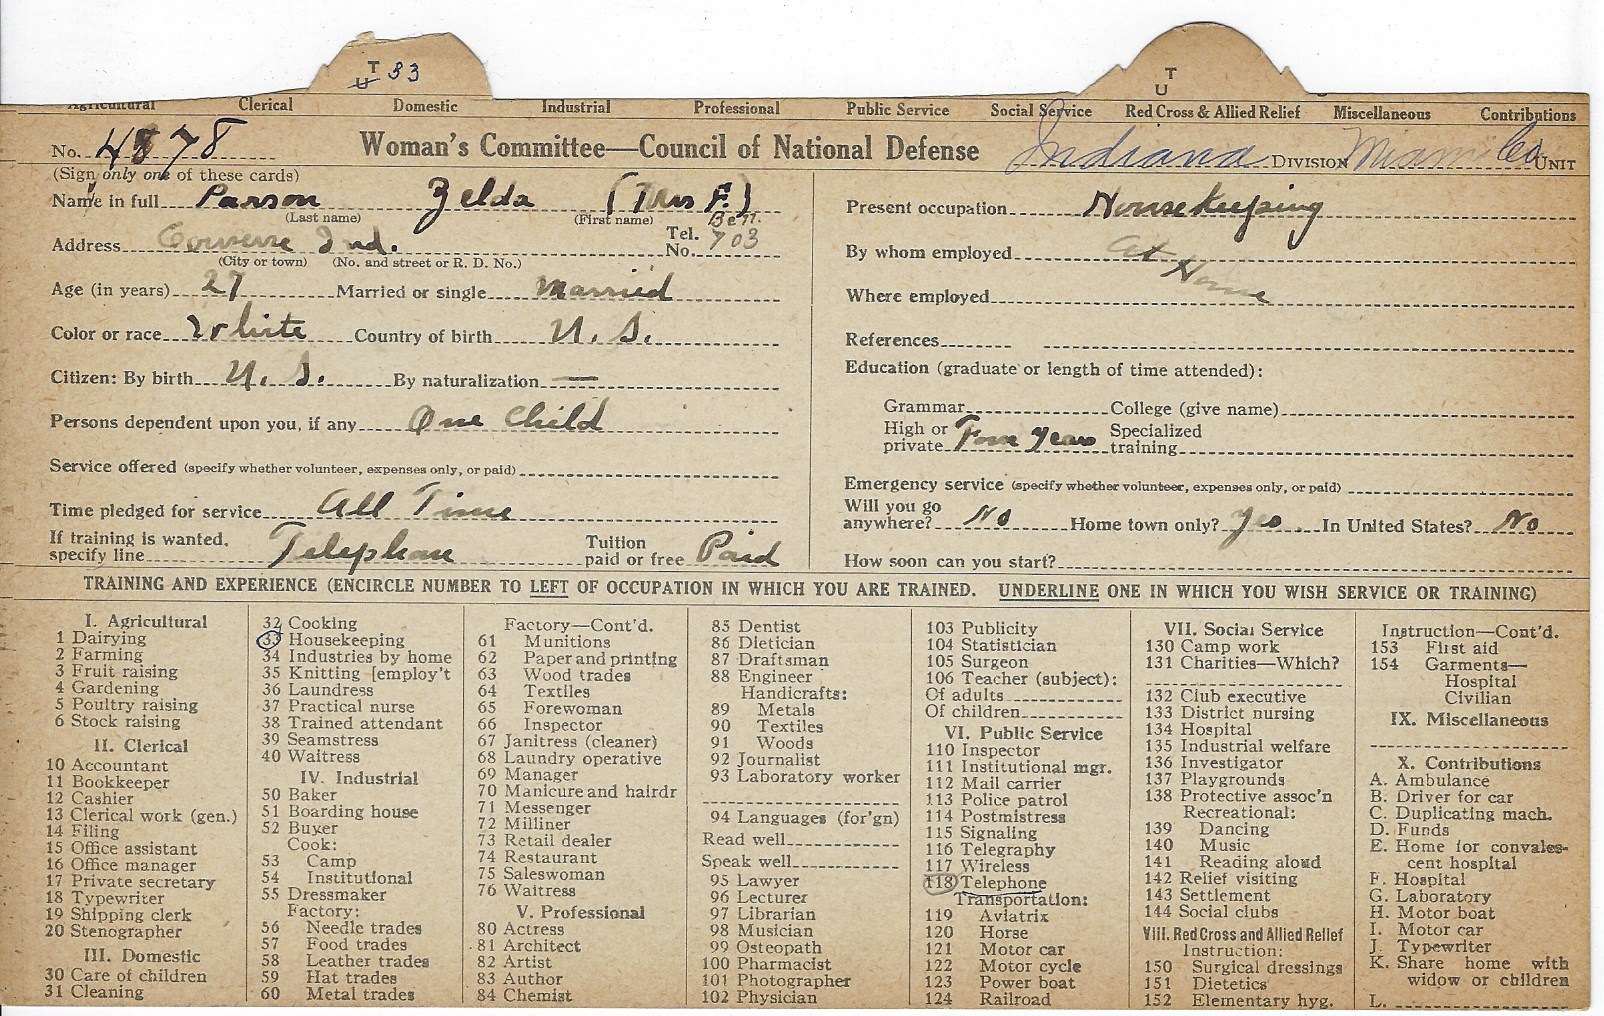 T
U 33
T
U
Agricultural Clerical Domestic Industrial Professional Public Service Social Service Red Cross & Allied Relief Miscellaneous Contributions
No. 4878 Woman's Committee—Council of National Defense Indiana DIVISION Miami Co. UNIT
(Sign only one of these cards)
Name in full Parson Zelda (Mrs F.)
(Last name) (First name) Bell.
Address Converse Ind. Tel. No. 703
(City or town) (No. and street or R. D. No.)
Age (in years) 27 Married or single married
Color or race White Country of birth U. S.
Citizen: By birth U. S. By naturalization —
Persons dependent upon you, if any One Child
Service offered (specify whether volunteer, expenses only, or paid)
Time pledged for service All Time
If training is wanted, specify line Telephone Tuition paid or free Paid
Present occupation Housekeeping
By whom employed At Home
Where employed
References
Education (graduate or length of time attended):
Grammar College (give name)
High or private Four years Specialized training
Emergency service (specify whether volunteer, expenses only, or paid)
Will you go anywhere? No Home town only? yes In United States? No
How soon can you start?
TRAINING AND EXPERIENCE (ENCIRCLE NUMBER TO LEFT OF OCCUPATION IN WHICH YOU ARE TRAINED. UNDERLINE ONE IN WHICH YOU WISH SERVICE OR TRAINING)
I. Agricultural
1 Dairying
2 Farming
3 Fruit raising
4 Gardening
5 Poultry raising
6 Stock raising
II. Clerical
10 Accountant
11 Bookkeeper
12 Cashier
13 Clerical work (gen.)
14 Filing
15 Office assistant
16 Office manager
17 Private secretary
18 Typewriter
19 Shipping clerk
20 Stenographer
III. Domestic
30 Care of children
31 Cleaning
32 Cooking
33 Housekeeping
34 Industries by home
35 Knitting [employ't
36 Laundress
37 Practical nurse
38 Trained attendant
39 Seamstress
40 Waitress
IV. Industrial
50 Baker
51 Boarding house
52 Buyer
Cook:
53 Camp
54 Institutional
55 Dressmaker
Factory:
56 Needle trades
57 Food trades
58 Leather trades
59 Hat trades
60 Metal trades
Factory—Cont'd.
61 Munitions
62 Paper and printing
63 Wood trades
64 Textiles
65 Forewoman
66 Inspector
67 Janitress (cleaner)
68 Laundry operative
69 Manager
70 Manicure and hairdr
71 Messenger
72 Milliner
73 Retail dealer
74 Restaurant
75 Saleswoman
76 Waitress
V. Professional
80 Actress
81 Architect
82 Artist
83 Author
84 Chemist
85 Dentist
86 Dietician
87 Draftsman
88 Engineer
Handicrafts:
89 Metals
90 Textiles
91 Woods
92 Journalist
93 Laboratory worker
94 Languages (for'gn)
Read well
Speak well
95 Lawyer
96 Lecturer
97 Librarian
98 Musician
99 Osteopath
100 Pharmacist
101 Photographer
102 Physician
103 Publicity
104 Statistician
105 Surgeon
106 Teacher (subject):
Of adults
Of children
VI. Public Service
110 Inspector
111 Institutional mgr.
112 Mail carrier
113 Police patrol
114 Postmistress
115 Signaling
116 Telegraphy
117 Wireless
118 Telephone
Transportation:
119 Aviatrix
120 Horse
121 Motor car
122 Motor cycle
123 Power boat
124 Railroad
VII. Social Service
130 Camp work
131 Charities—Which?
132 Club executive
133 District nursing
134 Hospital
135 Industrial welfare
136 Investigator
137 Playgrounds
138 Protective assoc'n
Recreational:
139 Dancing
140 Music
141 Reading aloud
142 Relief visiting
143 Settlement
144 Social clubs
VIII. Red Cross and Allied Relief
Instruction:
150 Surgical dressings
151 Dietetics
152 Elementary hyg.
Instruction—Cont'd.
153 First aid
154 Garments—
Hospital
Civilian
IX. Miscellaneous
X. Contributions
A. Ambulance
B. Driver for car
C. Duplicating mach.
D. Funds
E. Home for convales-
cent hospital
F. Hospital
G. Laboratory
H. Motor boat
I. Motor car
J. Typewriter
K. Share home with
widow or children
L.